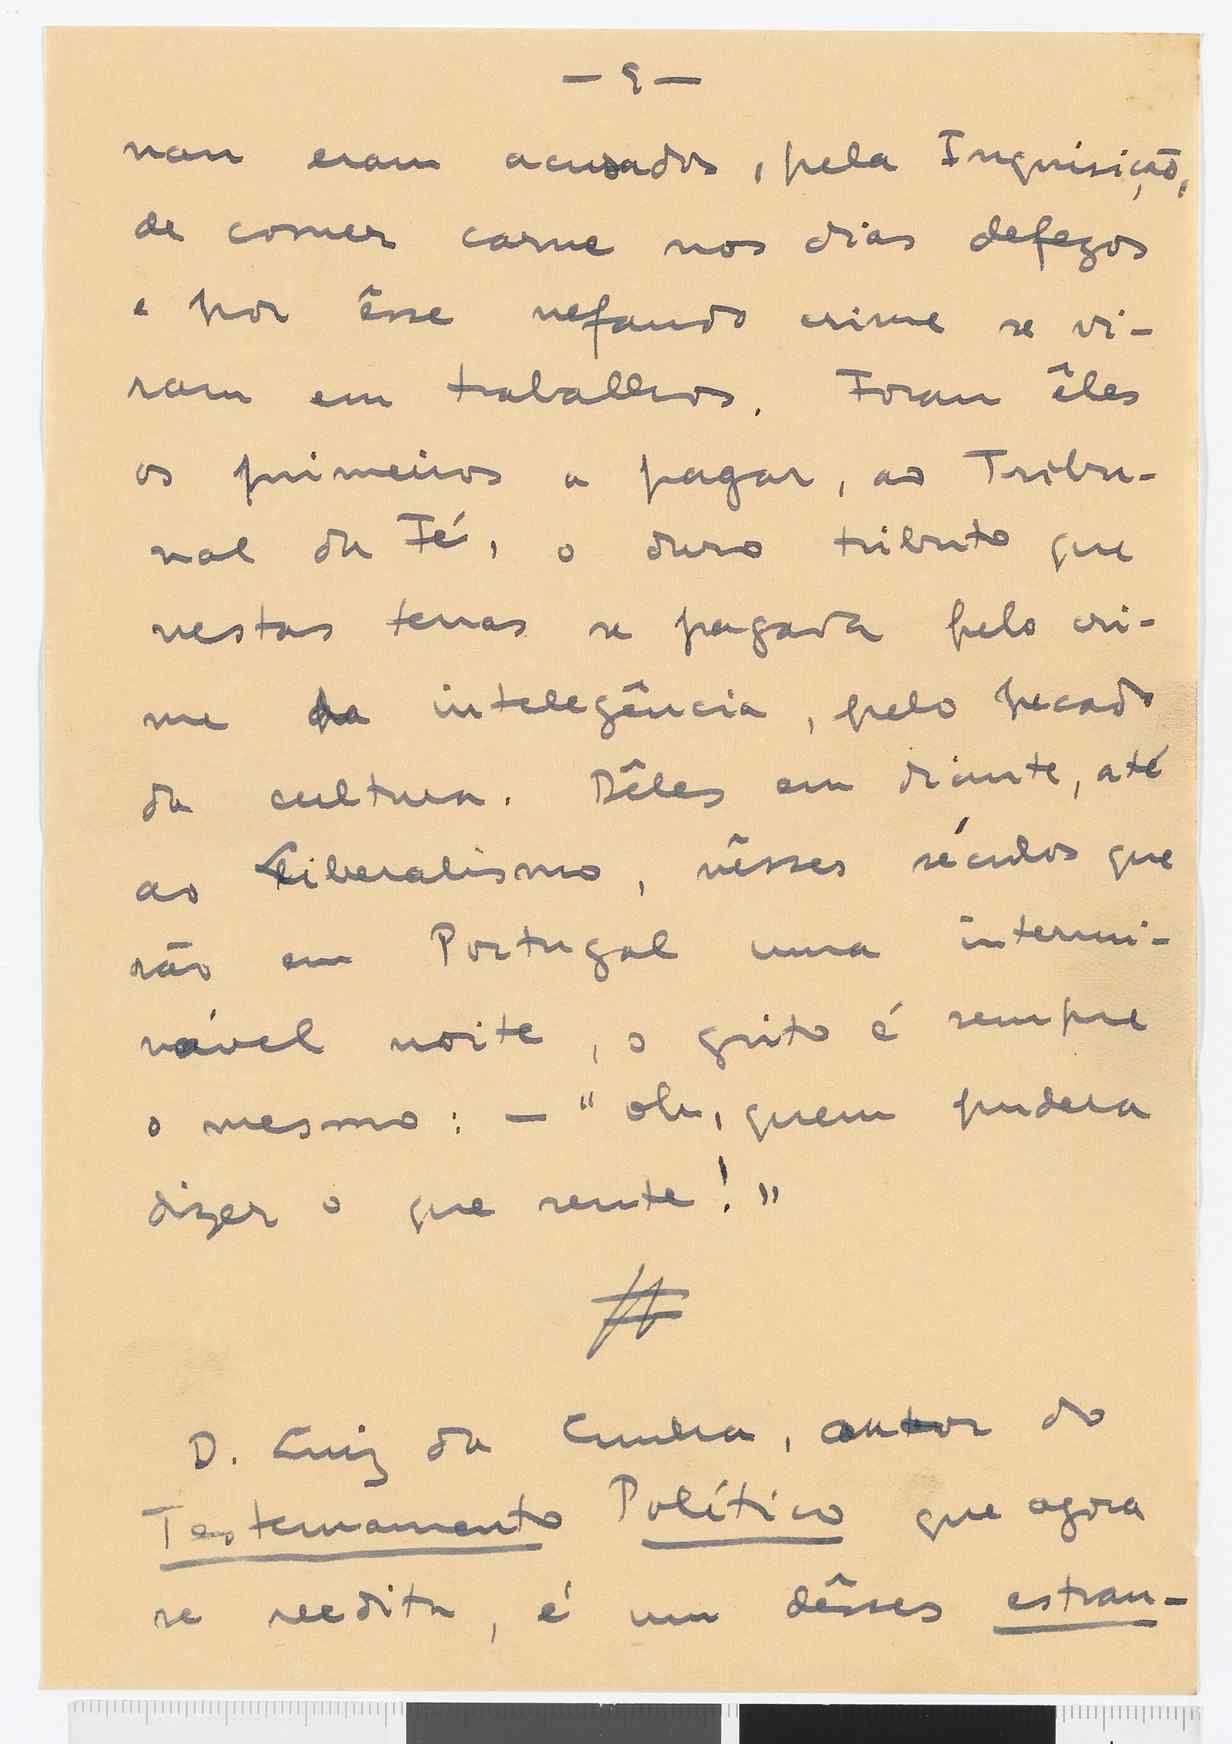 — 9 —
nan eram acusados, pela Inquisição,
de comer carne nos dias defezos
e por êsse nefando crime se vi-
ram em trabalhos. Foram êles
os primeiros a pagar, ao Tribu-
nal da Fé, o duro tributo que
nestas terras se pagava pelo cri-
me da intelegência, pelo pecado
da cultura. Dêles em diante, até
ao Liberalismo, nêsses séculos que
são em Portugal uma intermi-
nável noite, o grito é sempre
o mesmo: — "oh, quem pudera
dizer o que sente!"
D. Luiz da Cunha, autor do
Testemamento Político que agora
se reedita, é um dêsses estran-